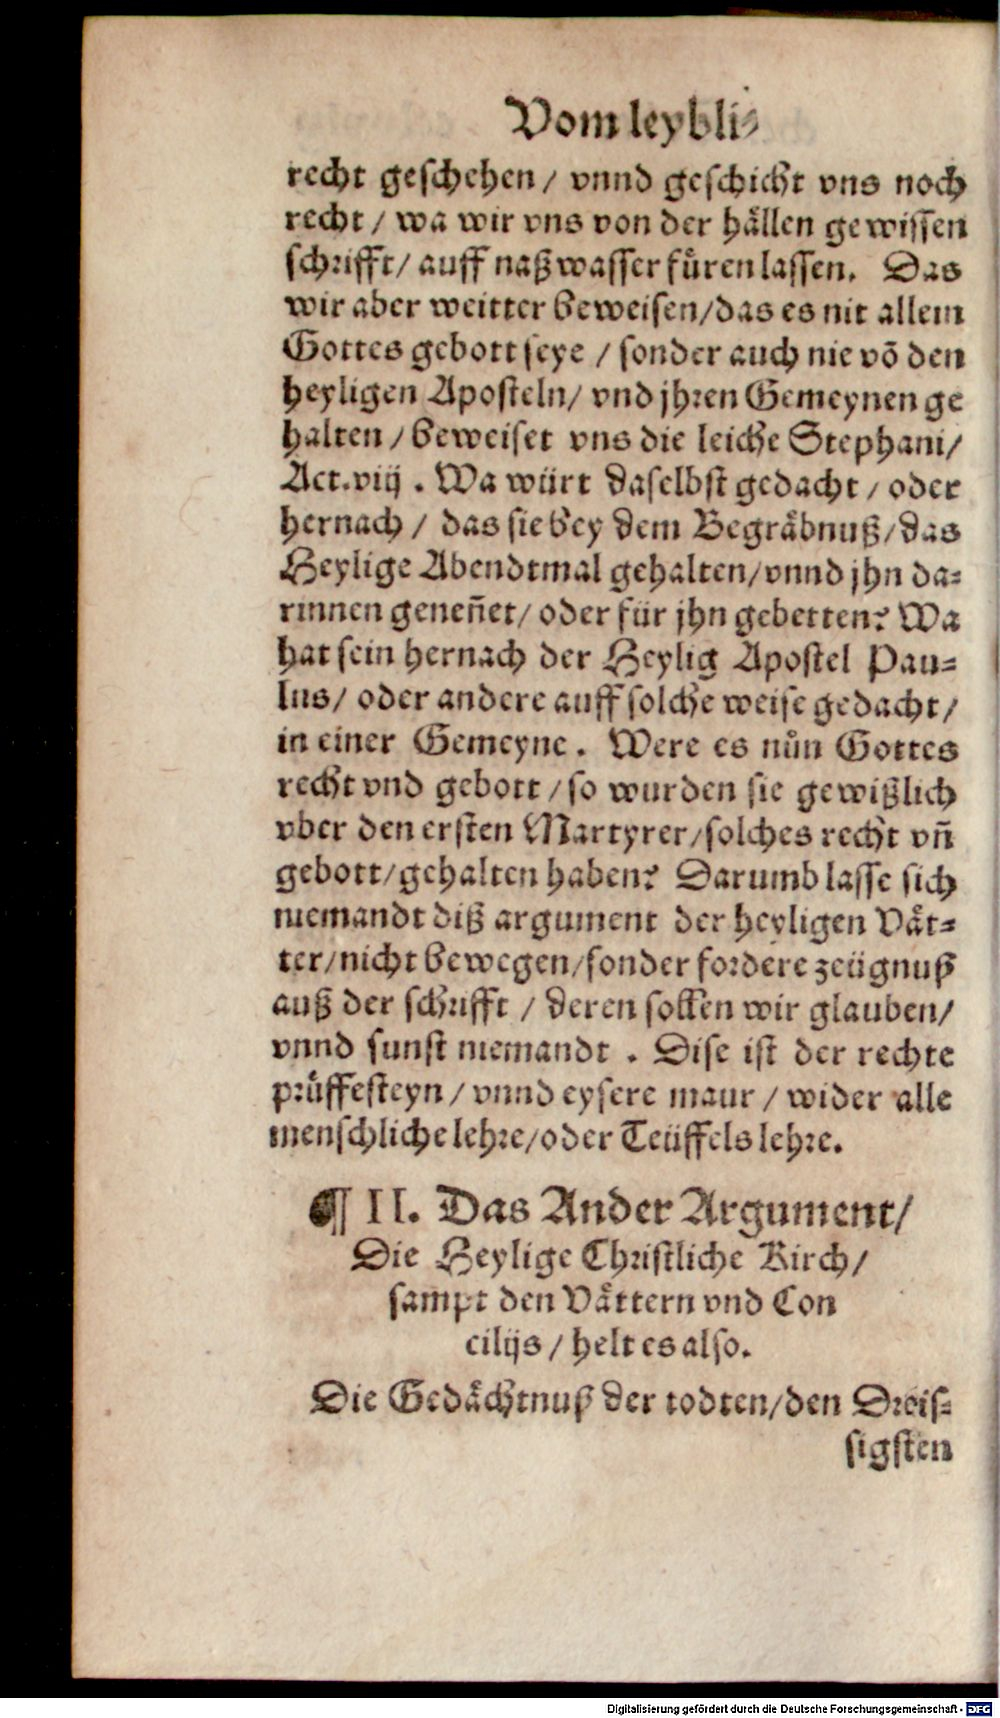 Vom leybli⸗
recht geschehen / vnnd geschicht vns noch
recht / wa wir vns von der hällen gewissen
schrifft / auff naß wasser füren lassen. Das
wir aber weitter beweisen / das es nit allein
Gottes gebott seye / sonder auch nie võ den
heyligen Aposteln / vnd jhren Gemeynen ge
halten / beweiset vns die leiche Stephani /
Act. viij. Wa würt daselbst gedacht / oder
hernach / das sie bey dem Begräbnuß / das
Heylige Abendtmal gehalten / vnnd jhn da⸗
rinnen geneñet / oder für jhn gebetten? Wa
hat sein hernach der Heylig Apostel Pau⸗
lus / oder andere auff solche weise gedacht /
in einer Gemeyne. Were es nůn Gottes
recht vnd gebott / so wurden sie gewißlich
vber den ersten Martyrer / solches recht vñ
gebott / gehalten haben? Darumb lasse sich
niemandt diß argument der heyligen Vät⸗
ter / nicht bewegen / sonder fordere zeügnuß
auß der schrifft / deren sollen wir glauben /
vnnd sunst niemandt. Dise ist der rechte
prüffesteyn / vnnd eysere maur / wider alle
menschliche lehre / oder Teüffels lehre.
¶ II. Das Ander Argument /
Die Heylige Christliche Kirch /
sampt den Vättern vnd Con
cilijs / helt es also.
Die Gedächtnuß der todten / den Dreis⸗
sigsten
Digitalisierung gefördert durch die Deutsche Forschungsgemeinschaft - DFG